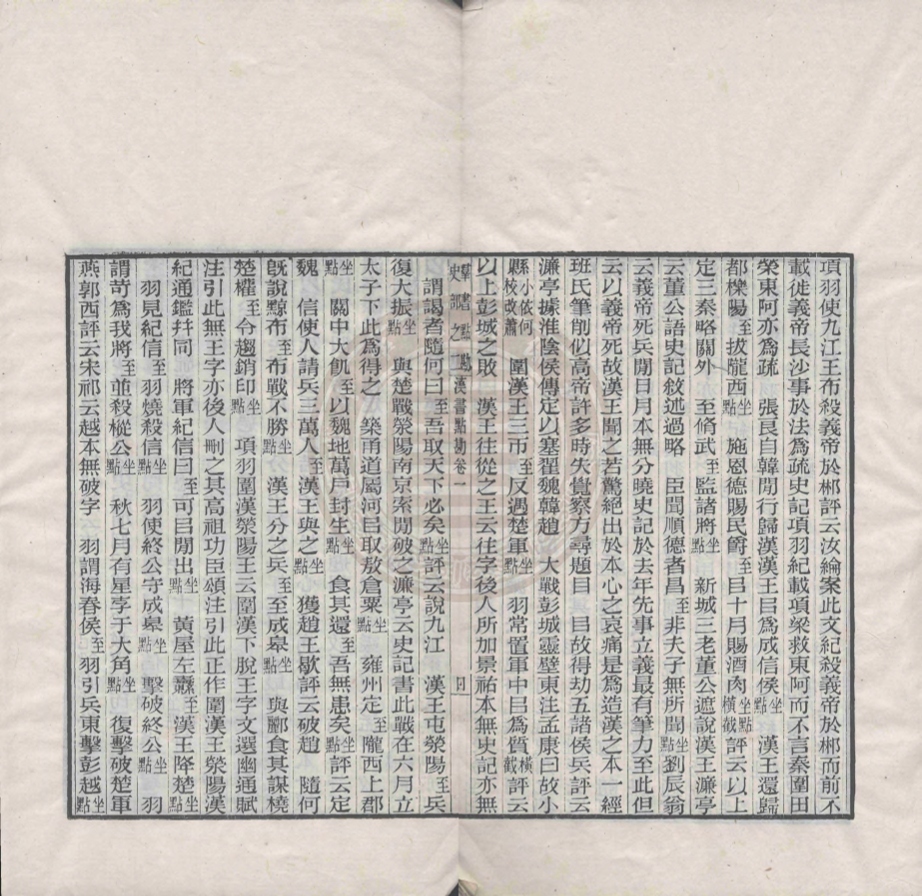 項羽使九江王布殺義帝於郴評云汝綸案此文紀殺義帝於郴而前不
載徙義帝長沙事於法爲疏史記項羽紀載項梁救東阿而不言秦圍田
榮東阿亦爲疏　張良自韓閒行歸漢漢王㠯爲成信侯坐點　漢王還歸
都櫟陽至拔隴西坐點　施恩德賜民爵至㠯十月賜酒肉坐點橫截評云以上
定三秦略關外　至脩武至監諸將坐點　新城三老董公遮說漢王濂亭
云董公語史記敘述過略　臣聞順德者昌至非夫子無所聞坐點劉辰翁
云義帝死兵閒日月本無分曉史記於去年先事立義最有筆力至此但
云以義帝死故漢王聞之若驚絕出於本心之哀痛是爲造漢之本一經
班氏筆削似高帝許多時失覺察方尋題目　㠯故得劫五諸侯兵評云
濂亭據淮陰侯傳定以塞翟魏韓趙　大戰彭城靈壁東注孟康曰故小
縣小依何校改蕭　圍漢王三帀至反遇楚軍坐點　羽常置軍中㠯爲質橫截評云
以上彭城之敗　漢王往從之王云往字後人所加景祐本無史記亦無
羣書點勘史部之二漢書點勘卷一
謂謁者隨何曰至吾取天下必矣坐點評云說九江　漢王屯滎陽至兵
復大振坐點　與楚戰滎陽南京索閒破之濂亭云史記書此戰在六月立
太子下此爲得之　築甬道屬河㠯取敖倉粟坐點　雍州定至隴西上郡
坐點　關中大飢至以魏地萬戶封生坐點　食其還至吾無患矣坐點評云定
魏　信使人請兵三萬人至漢王與之坐點　獲趙王歇評云破趙　隨何
旣說黥布至布戰不勝坐點　漢王分之兵至至成皋坐點　與酈食其謀橈
楚權至令趨銷印坐點　項羽圍漢滎陽王云圍漢下脫王字文選幽通賦
注引此無王字亦後人刪之其高祖功臣頌注引此正作圍漢王滎陽漢
紀通鑑幷同　將軍紀信曰至可㠯閒出坐點　黃屋左纛至漢王降楚坐點
羽見紀信至羽燒殺信坐點　羽使終公守成皋坐點　擊破終公坐點　羽
謂苛爲我將至並殺樅公坐點　秋七月有星孛于大角坐點　復擊破楚軍
燕郭西評云宋祁云越本無破字　羽謂海春侯至羽引兵東擊彭越坐點